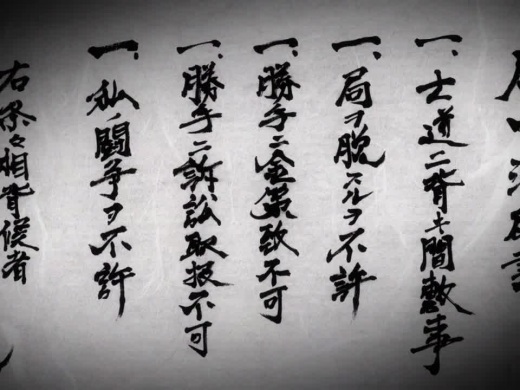 一、士道ニ背キ間敷事
一、局ヲ脱スルヲ不許
一、勝手ニ金策致不可
一、勝手ニ訴訟取扱不可
一、私ノ闘争ヲ不許
右条々相背候者